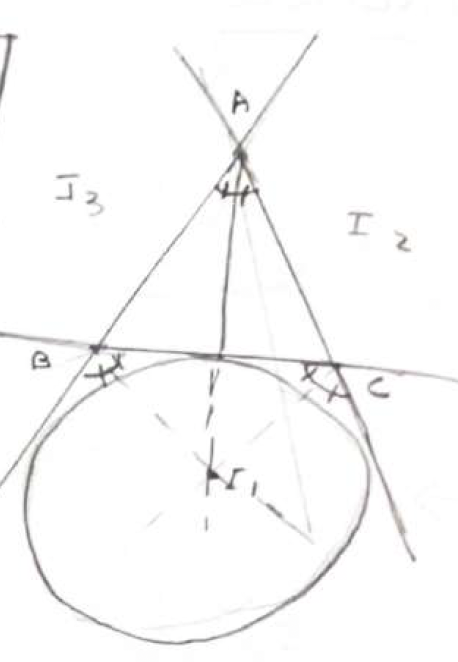 A
I3
I2
B
C
I1